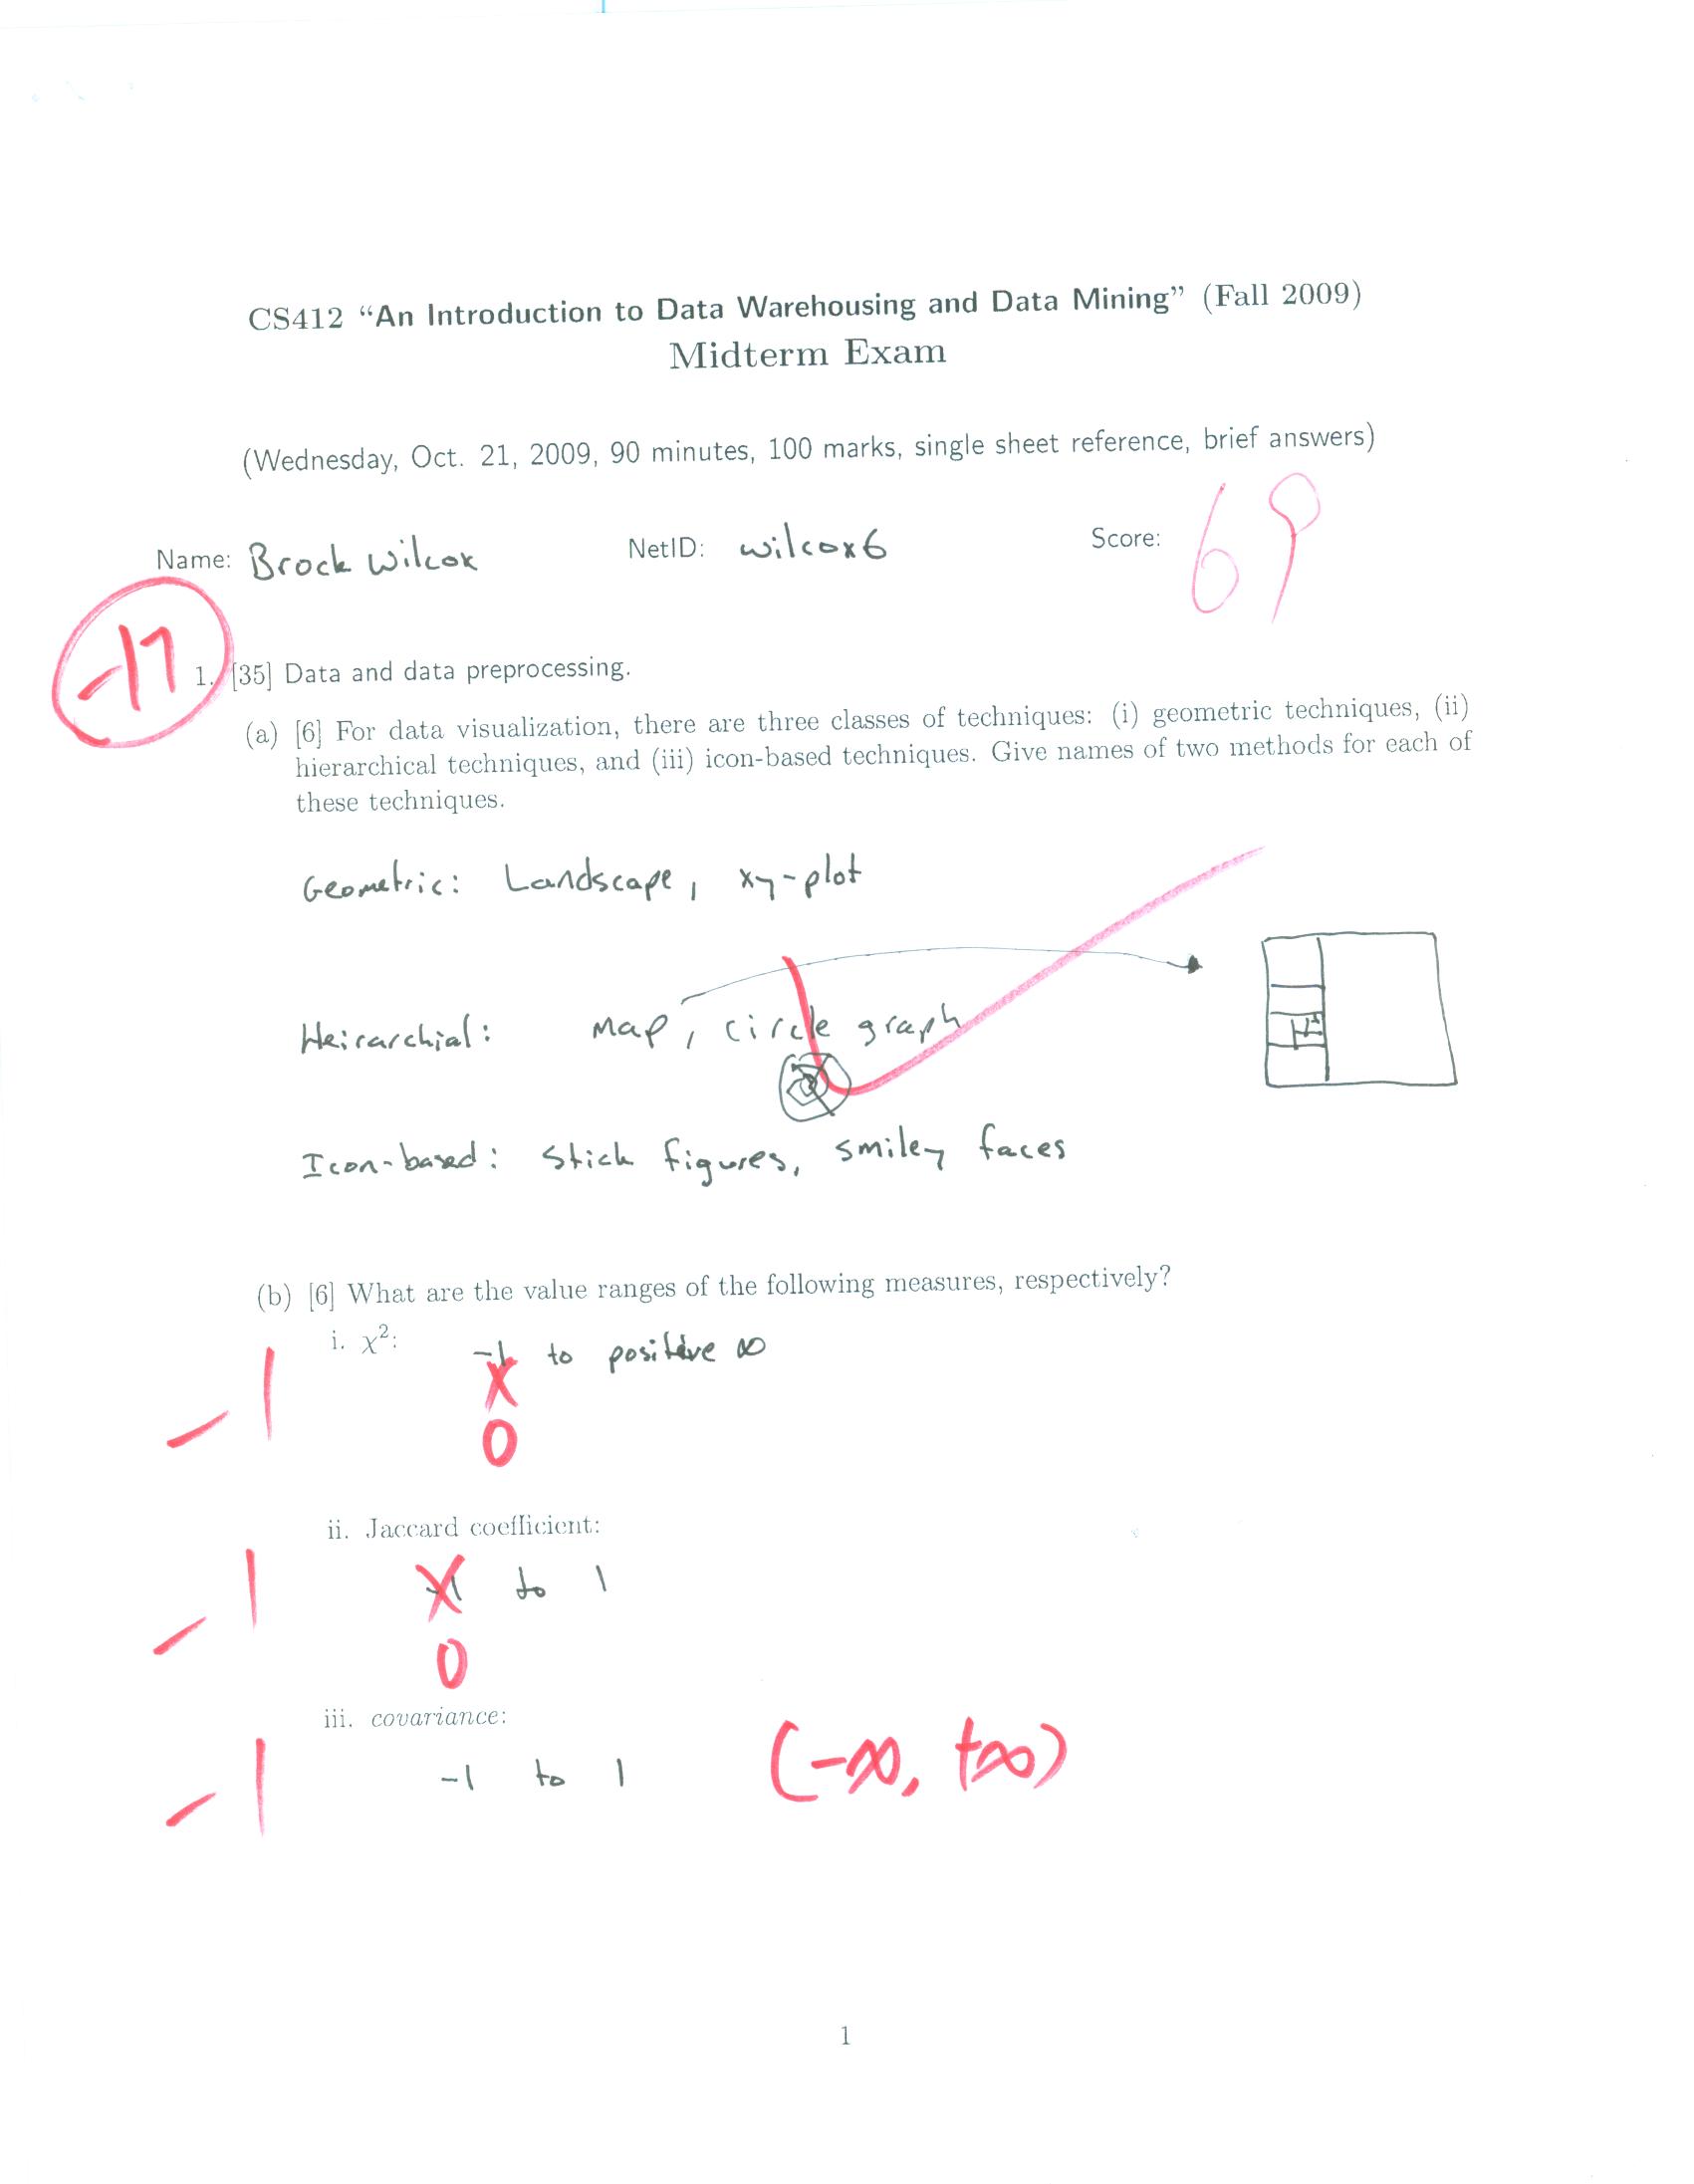 CS412 “An Introduction to Data Warehousing and Data Mining” (Fall 2009)
Midterm Exam
(Wednesday, Oct. 21, 2009, 90 minutes, 100 marks, single sheet reference, brief answers)
Name: Brock Wilcox NetID: wilcox6 Score: 69
-17
1. [35] Data and data preprocessing.
(a) [6] For data visualization, there are three classes of techniques: (i) geometric techniques, (ii)
hierarchical techniques, and (iii) icon-based techniques. Give names of two methods for each of
these techniques.
Geometric: Landscape, xy-plot
Heirarchial: map, circle graph
Icon-based: stick figures, smiley faces
(b) [6] What are the value ranges of the following measures, respectively?
i. χ²:
-1 -1 to positive ∞
0
ii. Jaccard coefficient:
-1 -1 to 1
0
iii. covariance:
-1 -1 to 1 (-∞, +∞)
1